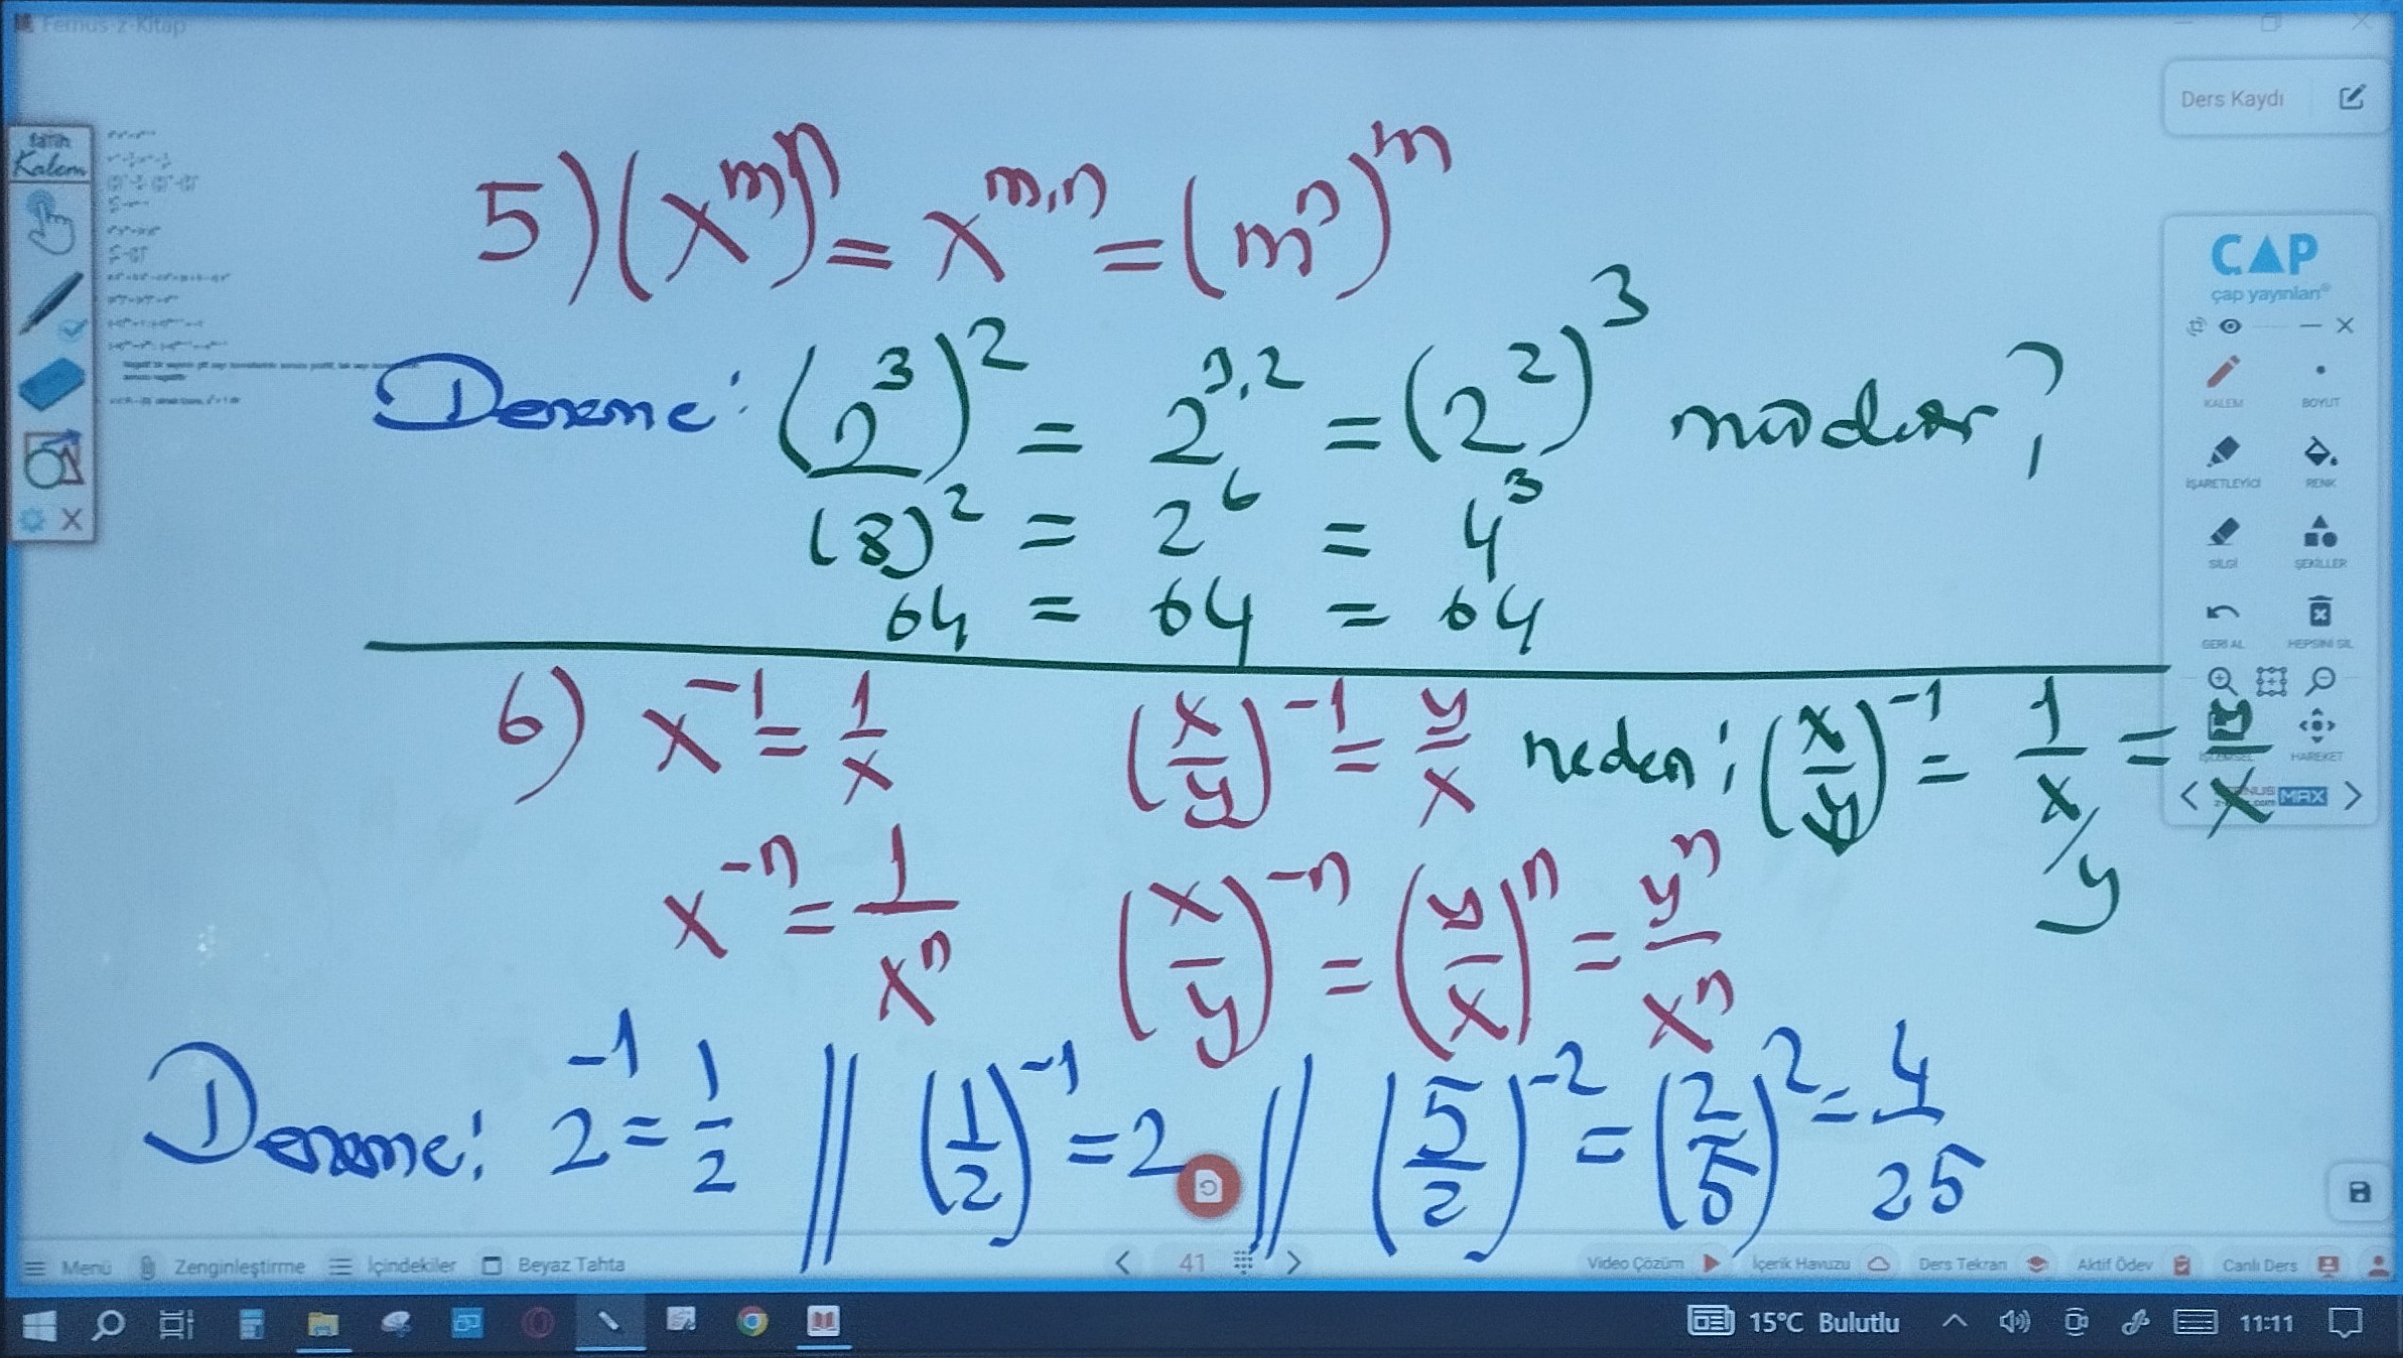 Fernus-z-Kitap
Ders Kaydı
fatih
Kalem
5) (x^m)^n = x^{m.n} = (m^n)^m
Deneme: (2^3)^2 = 2^{3.2} = (2^2)^3 midir?
(8)^2 = 2^6 = 4^3
64 = 64 = 64
6) x^{-1} = 1/x (x/y)^{-1} = y/x neden: (x/y)^{-1} = 1/(x/y) = y/x
x^{-n} = 1/x^n (x/y)^{-n} = (y/x)^n = y^n/x^n
Deneme: 2^{-1} = 1/2 // (1/2)^{-1} = 2 // (5/2)^{-2} = (2/5)^2 = 4/25
ÇAP
çap yayınları®
KALEM BOYUT
İŞARETLEYİCİ RENK
SİLGİ ŞEKİLLER
GERİ AL HEPSİNİ SİL
HAREKET
MAX
Menü Zenginleştirme İçindekiler Beyaz Tahta 41 Video Çözüm İçerik Havuzu Ders Tekrarı Aktif Ödev Canlı Ders
15°C Bulutlu 11:11